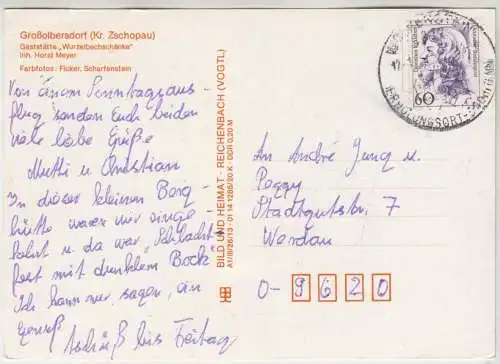 Großolbersdorf (Kr. Zschopau)
Gaststätte „Wurzelbachschänke"
Inh. Horst Meyer
Farbfotos: Ficker, Scharfenstein
Von einem Sonntagsaus-
flug senden Euch beiden
viele liebe Grüße
Mutti u. Christian
In dieser kleinen Berg-
hütte waren wir einge-
kehrt u. da war „Schlacht-
fest mit dunklem Bock"
Ich kann nur sagen, ein
Genuß
Tschüß bis Freitag
BILD UND HEIMAT · REICHENBACH (VOGTL)
A1/B/26/13 · 01 14 1285/20 K · DDR 0,20 M
60
ERHOLUNGSORT
An André Jung u.
Peggy
Stadtgutstr. 7
Werdau
O-9620